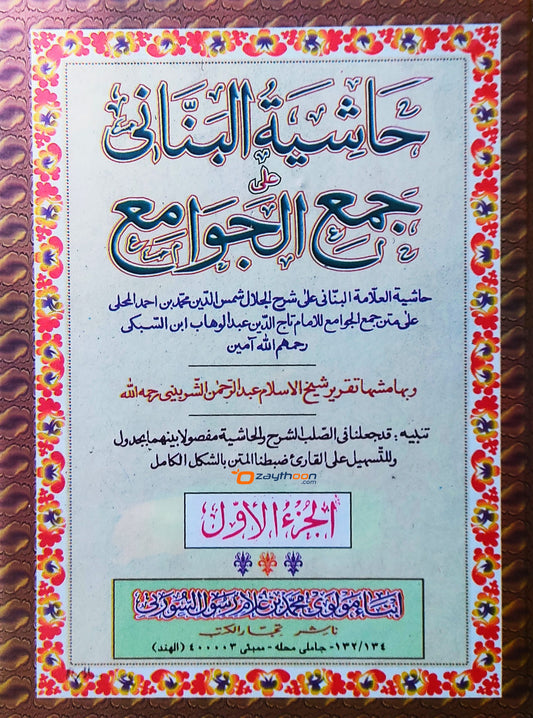 حَاشِيَةُ البَنَّانى
على
جَمعُ الجَوَامِعِ
حاشية العلّامة البنّانى على شرح الجلال شمس الدّين محمّد بن احمد المحلى
على متن جمع الجوامع للامام تاج الدّين عبد الوهاب ابن السّبكى
رحمهم الله آمين
وبهامشها تقرير شيخ الاسلام عبد الرّحمن الشّربينى رحمه الله
تنبيه : قد جعلنا فى الصّلب لشرح والحاشية مفصولا بينهما بجدول
وللتّسهيل على القارئ ضبطنا المتن بالشكل الكامل
Ozaythoon
.com
الجُزءُ الاوّلُ
ابناء مولوى محمد بن غلام رسول السورتى
ناشر تجتار الكتب
١٣٢/١٣٤- جاملى محله - ممبئى ٤٠٠٠٠٣ (الهند)